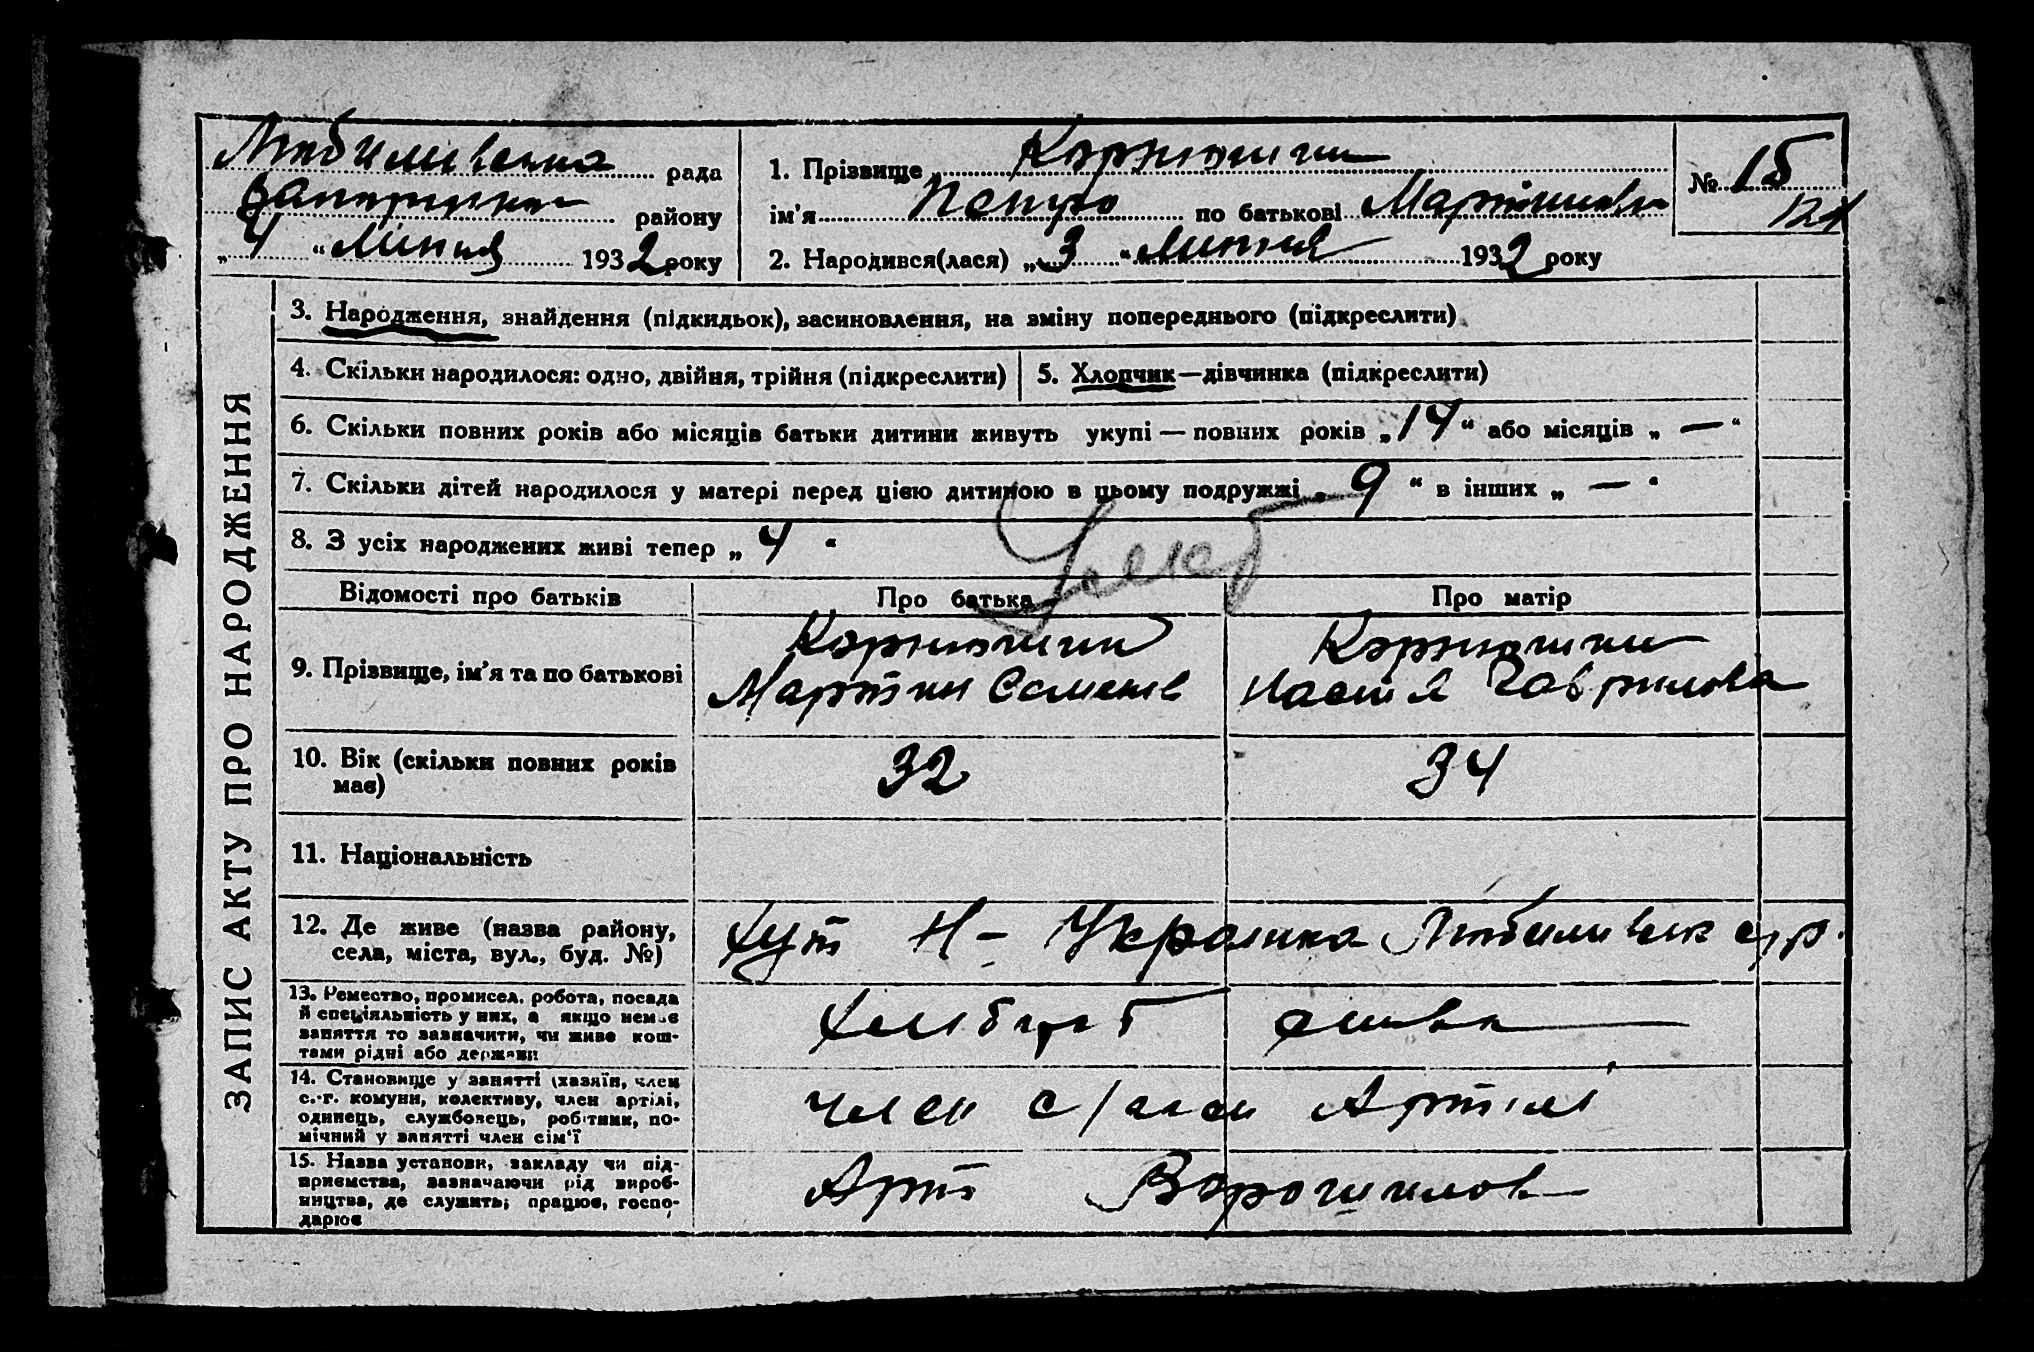 Любимівська рада
Запорізьк району
„4“ Липня 1932 року
1. Прізвище Корнюшин
ім'я Петро по батькові Мартинович
2. Народився(лася) „3“ Липня 1932 року
№ 15
ЗАПИС АКТУ ПРО НАРОДЖЕННЯ
3. Народження, знайдення (підкидьок), засиновлення, на зміну попереднього (підкреслити)
4. Скільки народилося: одно, двійня, трійня (підкреслити)
5. Хлопчик—дівчинка (підкреслити)
6. Скільки повних років або місяців батьки дитини живуть укупі — повних років „14“ або місяців „—“
7. Скільки дітей народилося у матері перед цією дитиною в цьому подружжі „9“ в інших „—“
8. З усіх народжених живі тепер „4“
Відомості про батьків
Про батька
Про матір
9. Прізвище, ім'я та по батькові
Корнюшин
Мартин Семенів
Корнюшин
Настя Гаврилова
10. Вік (скільки повних років
має)
32
34
11. Національність
12. Де живе (назва району,
села, міста, вул., буд. №)
Хут Н-Українка Любимівськ с/р.
13. Ремество, промисел, робота, посада
й спеціяльність у них, а якщо немає
заняття то зазначити, чи живе кош-
тами рідні або держави
Хлібороб
14. Становище у занятті (хазяїн, член
с.-г. комуни, колективу, член артілі,
одинець, службовець, робітник, по-
мічний у занятті член сім'ї
член с/госп Артілі
15. Назва установи, закладу чи під-
приємства, зазначаючи рід вироб-
ництва, де служить, працює, госпо-
дарює
Арт Ворошилов